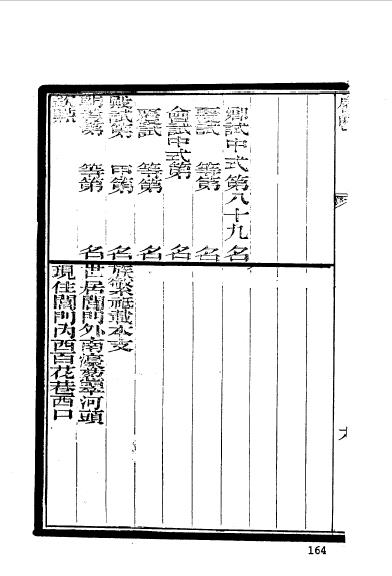 鄉試中式第八十九名
覆試 等第 名
會試中式第 名
覆試 等第 名
殿試第 甲第 名
朝考第 等第 名
欽點
族繁祗載本支
世居閶門外南濠
河頭
現住閶門內西百花巷西口
164